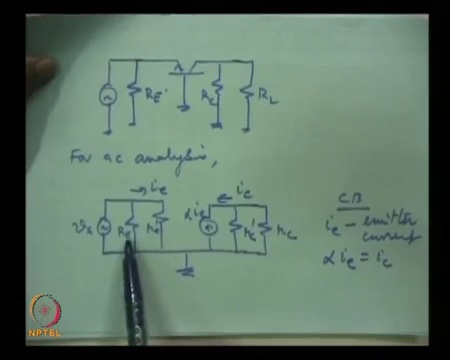 RE
RC
RL
For ac analysis,
ie
ic
vs
RE
re'
αie
rc'
rc
CB
ie - emitter
current
αie = ic
NPTEL